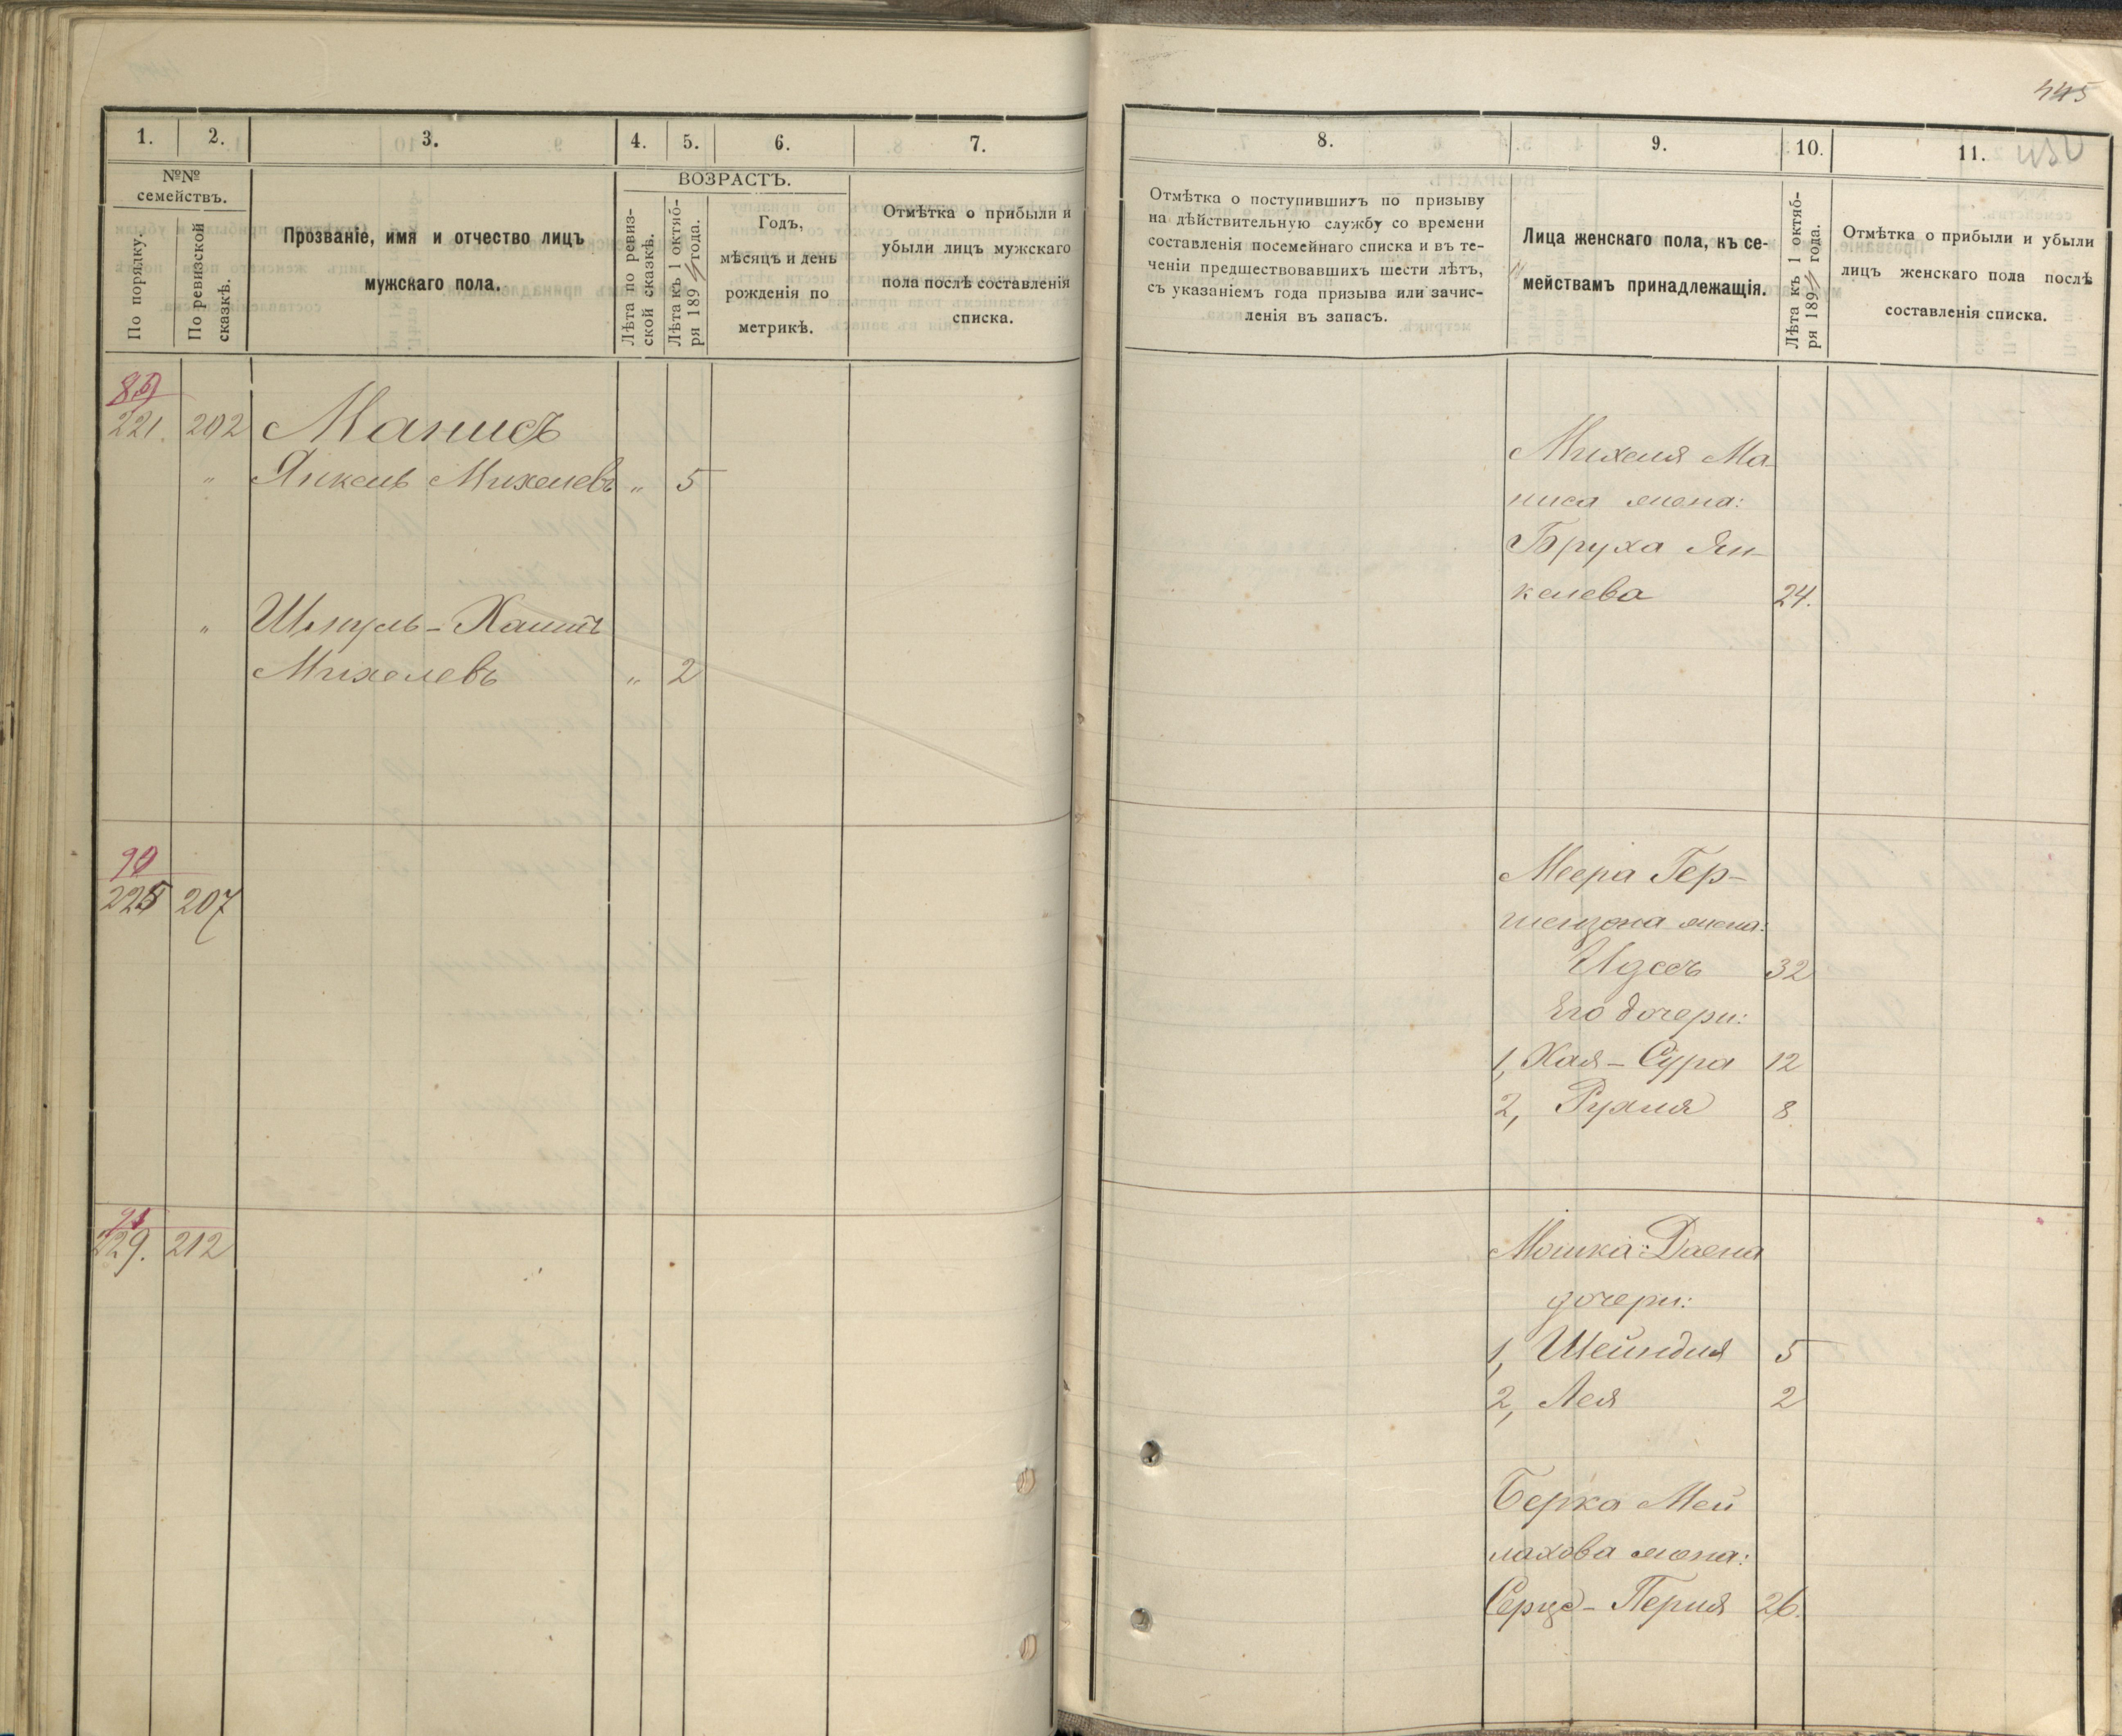 445
450
1.
2.
3.
4.
5.
6.
7.
№№ семействъ.
По порядку.
По ревизской сказкѣ.
Прозванiе, имя и отчество лицъ
мужскаго пола.
ВОЗРАСТЪ.
Лѣта по ревиз-
ской сказкѣ.
Лѣта къ 1 октяб-
ря 189 года.
Годъ,
мѣсяцъ и день
рожденiя по
метрикѣ.
Отмѣтка о прибыли и
убыли лицъ мужскаго
пола послѣ составленiя
списка.
221. 202 Манисъ
" Янкель Михелевъ " 5
" Шмуль-Хаимъ
Михелевъ " 2
90
225 207
91
229. 212
8.
9.
10.
11.
Отмѣтка о поступившихъ по призыву
на дѣйствительную службу со времени
составленiя посемейнаго списка и въ те-
ченiи предшествовавшихъ шести лѣтъ,
съ указанiемъ года призыва или зачис-
ленiя въ запасъ.
Лица женскаго пола, къ се-
мействамъ принадлежащiя.
Лѣта къ 1 октяб-
ря 189 года.
Отмѣтка о прибыли и убыли
лицъ женскаго пола послѣ
составленiя списка.
Михеля Ма-
ниса жена:
Бруха Ян-
келева 24.
Меера Гер-
шензона жена:
Идесъ 32
Его дочери:
1, Хая-Сура 12
2, Рухля 8
Мошка
дочери:
1, Шейндля 5
2, Лея 2
Берка Мей
лахова жена:
Перля 26.